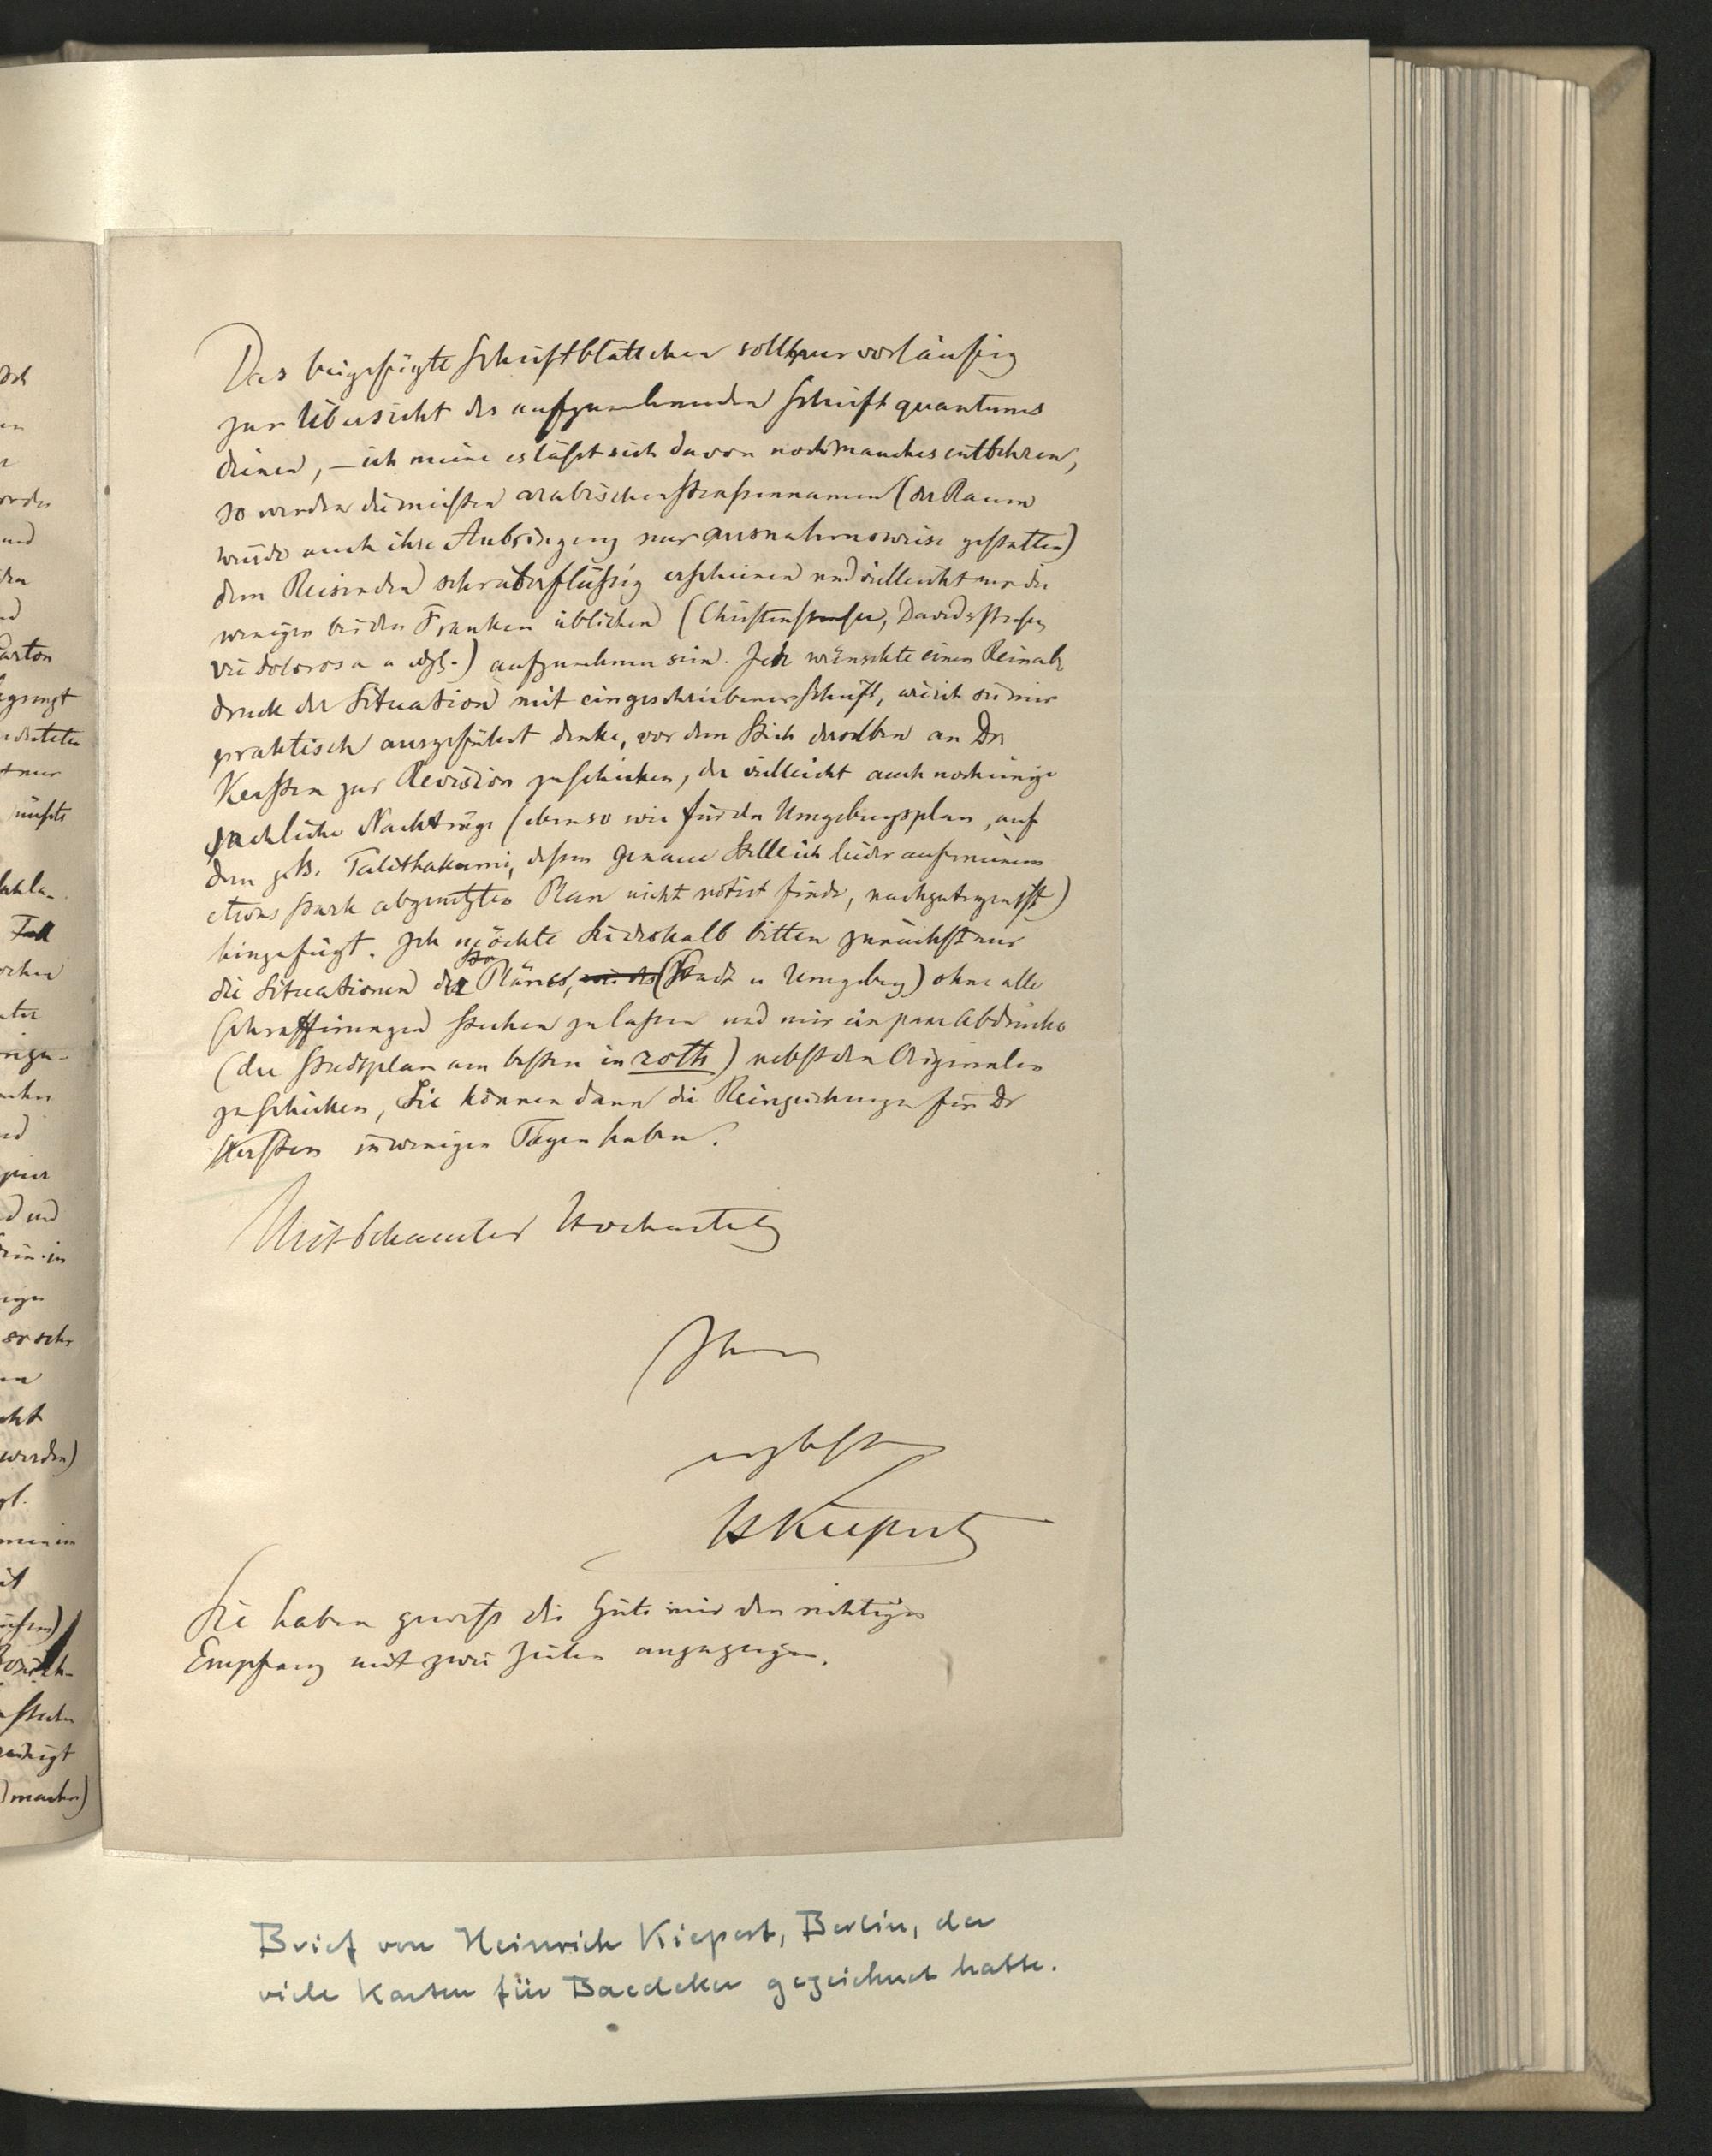 Das beigefügte Schriftblättchen sollte nur vorläufig
zur Übersicht des aufzunehmenden Schriftquantums
dienen, – ich meine es läßt sich davon noch manches entbehren,
so werden die meisten arabischen Straßennamen (der Raum
würde auch ihre Anbringung nur ausnahmsweise gestatten)
dem Reisenden sehr überflüßig erscheinen und vielleicht nur die
wenigen bei den Franken üblichen (Christenstraße, Davidsstraße,
via dolorosa u dgl.) aufzunehmen sein. Ich wünschte einen Reinab-
druck der Situation mit eingeschriebener Schrift, wie ich sie mir
praktisch ausgeführt denke, vor dem Stich derselben an Dr
Kersten zur Revision zu schicken, der vielleicht auch noch einige
sachliche Nachträge (ebenso wie für den Umgebungsplan, auf
dem z.B. Talithakumi, dessen genaue Stelle ich leider auf meinem
etwas stark abgenutzten Plan nicht notirt finde, nachzutragen ist)
hinzufügt. Ich möchte Sie deshalb bitten zunächst nur
die Situationen der Pläne, (Stadt u Umgebung) ohne alle
Schraffirungen stechen zu lassen und mir ein paar Abdrücke
(der Stadtplan am besten in roth) nebst den Originalen
zu schicken, Sie können dann die Reinzeichnungen für Dr
Kersten in wenigen Tagen haben.
Mit bekannter Hochachtung
Ihr
ergebenster
H Kiepert
Sie haben gewiß die Güte mir den richtigen
Empfang mit zwei Zeilen anzuzeigen.
Brief von Heinrich Kiepert, Berlin, der
viele Karten für Baedeker gezeichnet hatte.